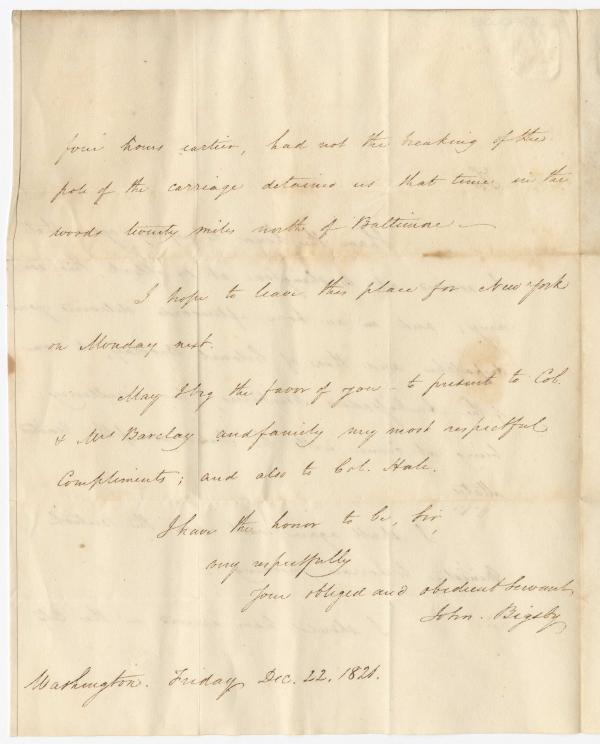 four hours earlier, had not the breaking of the
pole of the carriage detained us that time in the
woods twenty miles north of Baltimore —
I hope to leave this place for New York
on Monday next.
May I beg the favor of you – to present to Col.
& Mrs Barclay and family my most respectful
Compliments; and also to Col. Hale.
I have the honor to be, Sir,
very respectfully
Your obliged and obedient Servant
John. Bigsby
Washington. Friday Dec. 22. 1820.